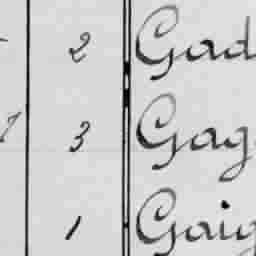 2 Gad
3 Gag
1 Gaig